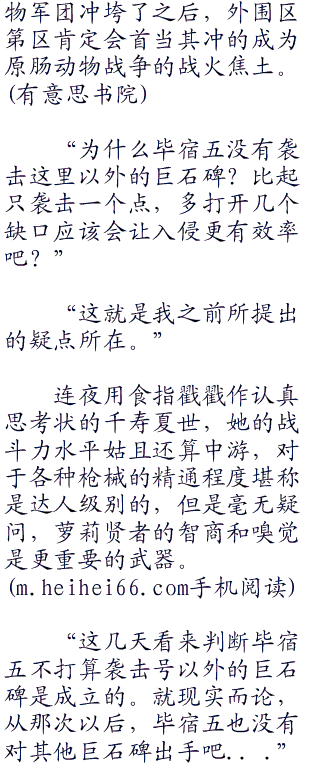 物军团冲垮了之后，外围区
第区肯定会首当其冲的成为
原肠动物战争的战火焦土。
(有意思书院)
“为什么毕宿五没有袭
击这里以外的巨石碑？比起
只袭击一个点，多打开几个
缺口应该会让入侵更有效率
吧？”
“这就是我之前所提出
的疑点所在。”
连夜用食指戳戳作认真
思考状的千寿夏世，她的战
斗力水平姑且还算中游，对
于各种枪械的精通程度堪称
是达人级别的，但是毫无疑
问，萝莉贤者的智商和嗅觉
是更重要的武器。
(m.heihei66.com手机阅读)
“这几天看来判断毕宿
五不打算袭击号以外的巨石
碑是成立的。就现实而论，
从那次以后，毕宿五也没有
对其他巨石碑出手吧...”